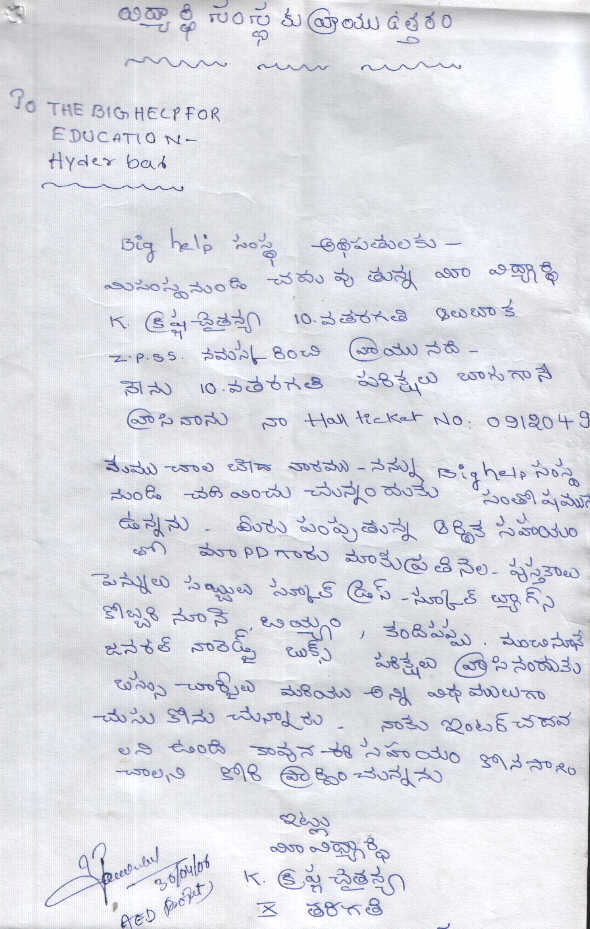 విద్యార్థి సంస్థకు వ్రాయు ఉత్తరం
To THE BIG HELP FOR
EDUCATION-
Hyderbad
Big help సంస్థ అధిపతులకు -
మిసంస్థనుండి చదువు తున్న మీ విద్యార్థి
K. క్రిష్ణ చైతన్య 10.వతరగతి
Z.P.SS. నమస్కరించి వ్రాయునది -
నేను 10.వతరగతి పరిక్షలు బాగుగానే
వ్రాసినాను నా Hall ticket No: 0912049
మేము చాల బీద వారము - నన్ను Big help సంస్థ
నుండి చదివించు చున్నందుకు సంతోషముగ
ఉన్నను. మీరు పంపుతున్న ఆర్థిక సహాయం
తో మా PD గారు మాకు ప్రతినెల పుస్తకాలు
పెన్నులు సబ్బులు స్కూల్ డ్రస్ - స్కూల్ బ్యాగ్స్
కోబ్బరి నూనే, బియ్యం, కందిపప్పు. మంచినూనే
జనరల్ నాలెడ్జ్ బుక్స్ పరిక్షలు వ్రాసినందుకు
బస్సు చార్జీలు మరియు అన్ని విధములుగా
చుసు కోను చున్నారు. నాకు ఇంటర్ చదవ
లని ఉంది కావున ఈ సహయం కోనసాగిం
చాలని కోరి ప్రార్థించుచున్నను
ఇట్లు
మీ విద్యార్థి
K. క్రిష్ణ చైతన్య
X తరగతి
30/04/06
AED